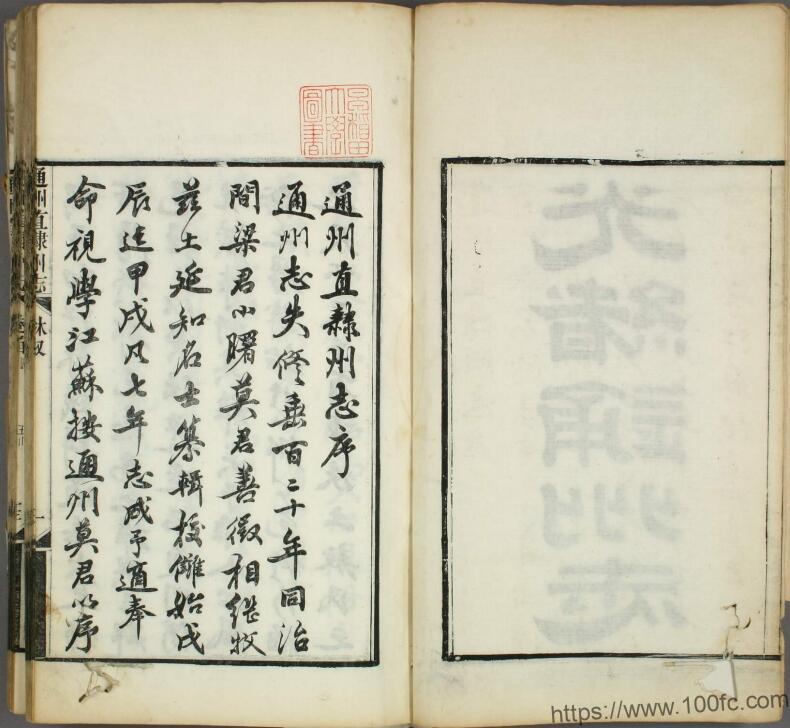 通州直隸州志序
通州志失修垂百二十年同治
間梁君小曙莫君善徵相繼牧
茲土延知名士纂輯校讎始戊
辰迄甲戌凡七年志成予適奉
命視學江蘇按通州莫君以序
早稲田
大學
圖書
通州直隸州志
林敘
一
https://www.100fc.com